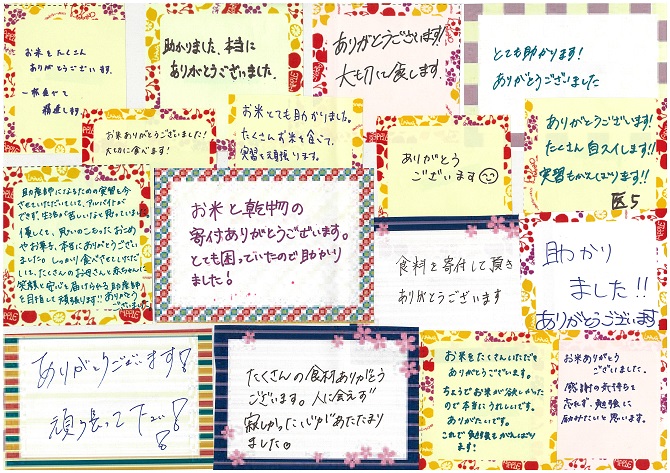 お米をたくさん
ありがとうございます。
助かりました、本当に
ありがとうございました。
ありがとうございます!
大切に食します。
とても助かります!
ありがとうございました
お米ありがとうございました!
大切に食べます!
お米とても助かりました。
たくさんお米を食べて、
実習を頑張ります。
ありがとう
ございます
ありがとうございます!!
たくさん自スイします!!
実習もがんばります!!
医5
助産師になるための実習を今
させていただいていて、アルバイトが
できず、生活が苦しいなと思っていました。
優しくて、思いのこもったお米
やお菓子、本当にありがとうござい
ました。しっかり食べさせていただ
いて、たくさんのお母さんと赤ちゃんに
笑顔と安心を届けられる助産師
を目指して頑張ります!!ありがとう
ございました
お米と乾物の
寄付ありがとうございます。
とても困っていたので助かり
ました!
食料を寄付して頂き
ありがとうございます
助かり
ました!!
ありがとうございます
ありがとうございます!
頑張って
たくさんの食材ありがとう
ございます。人に会えず
寂しかった心があたたまり
ました。
お米をたくさんいただき
ありがとうございます。
ちょうどお米が欲しかった
ので本当にうれしいです。
ありがたいです。
これで勉強もがんばり
ます!
お米ありがとう
ございました。
感謝の気持ちを
忘れず、勉強に
励みたいと思います。